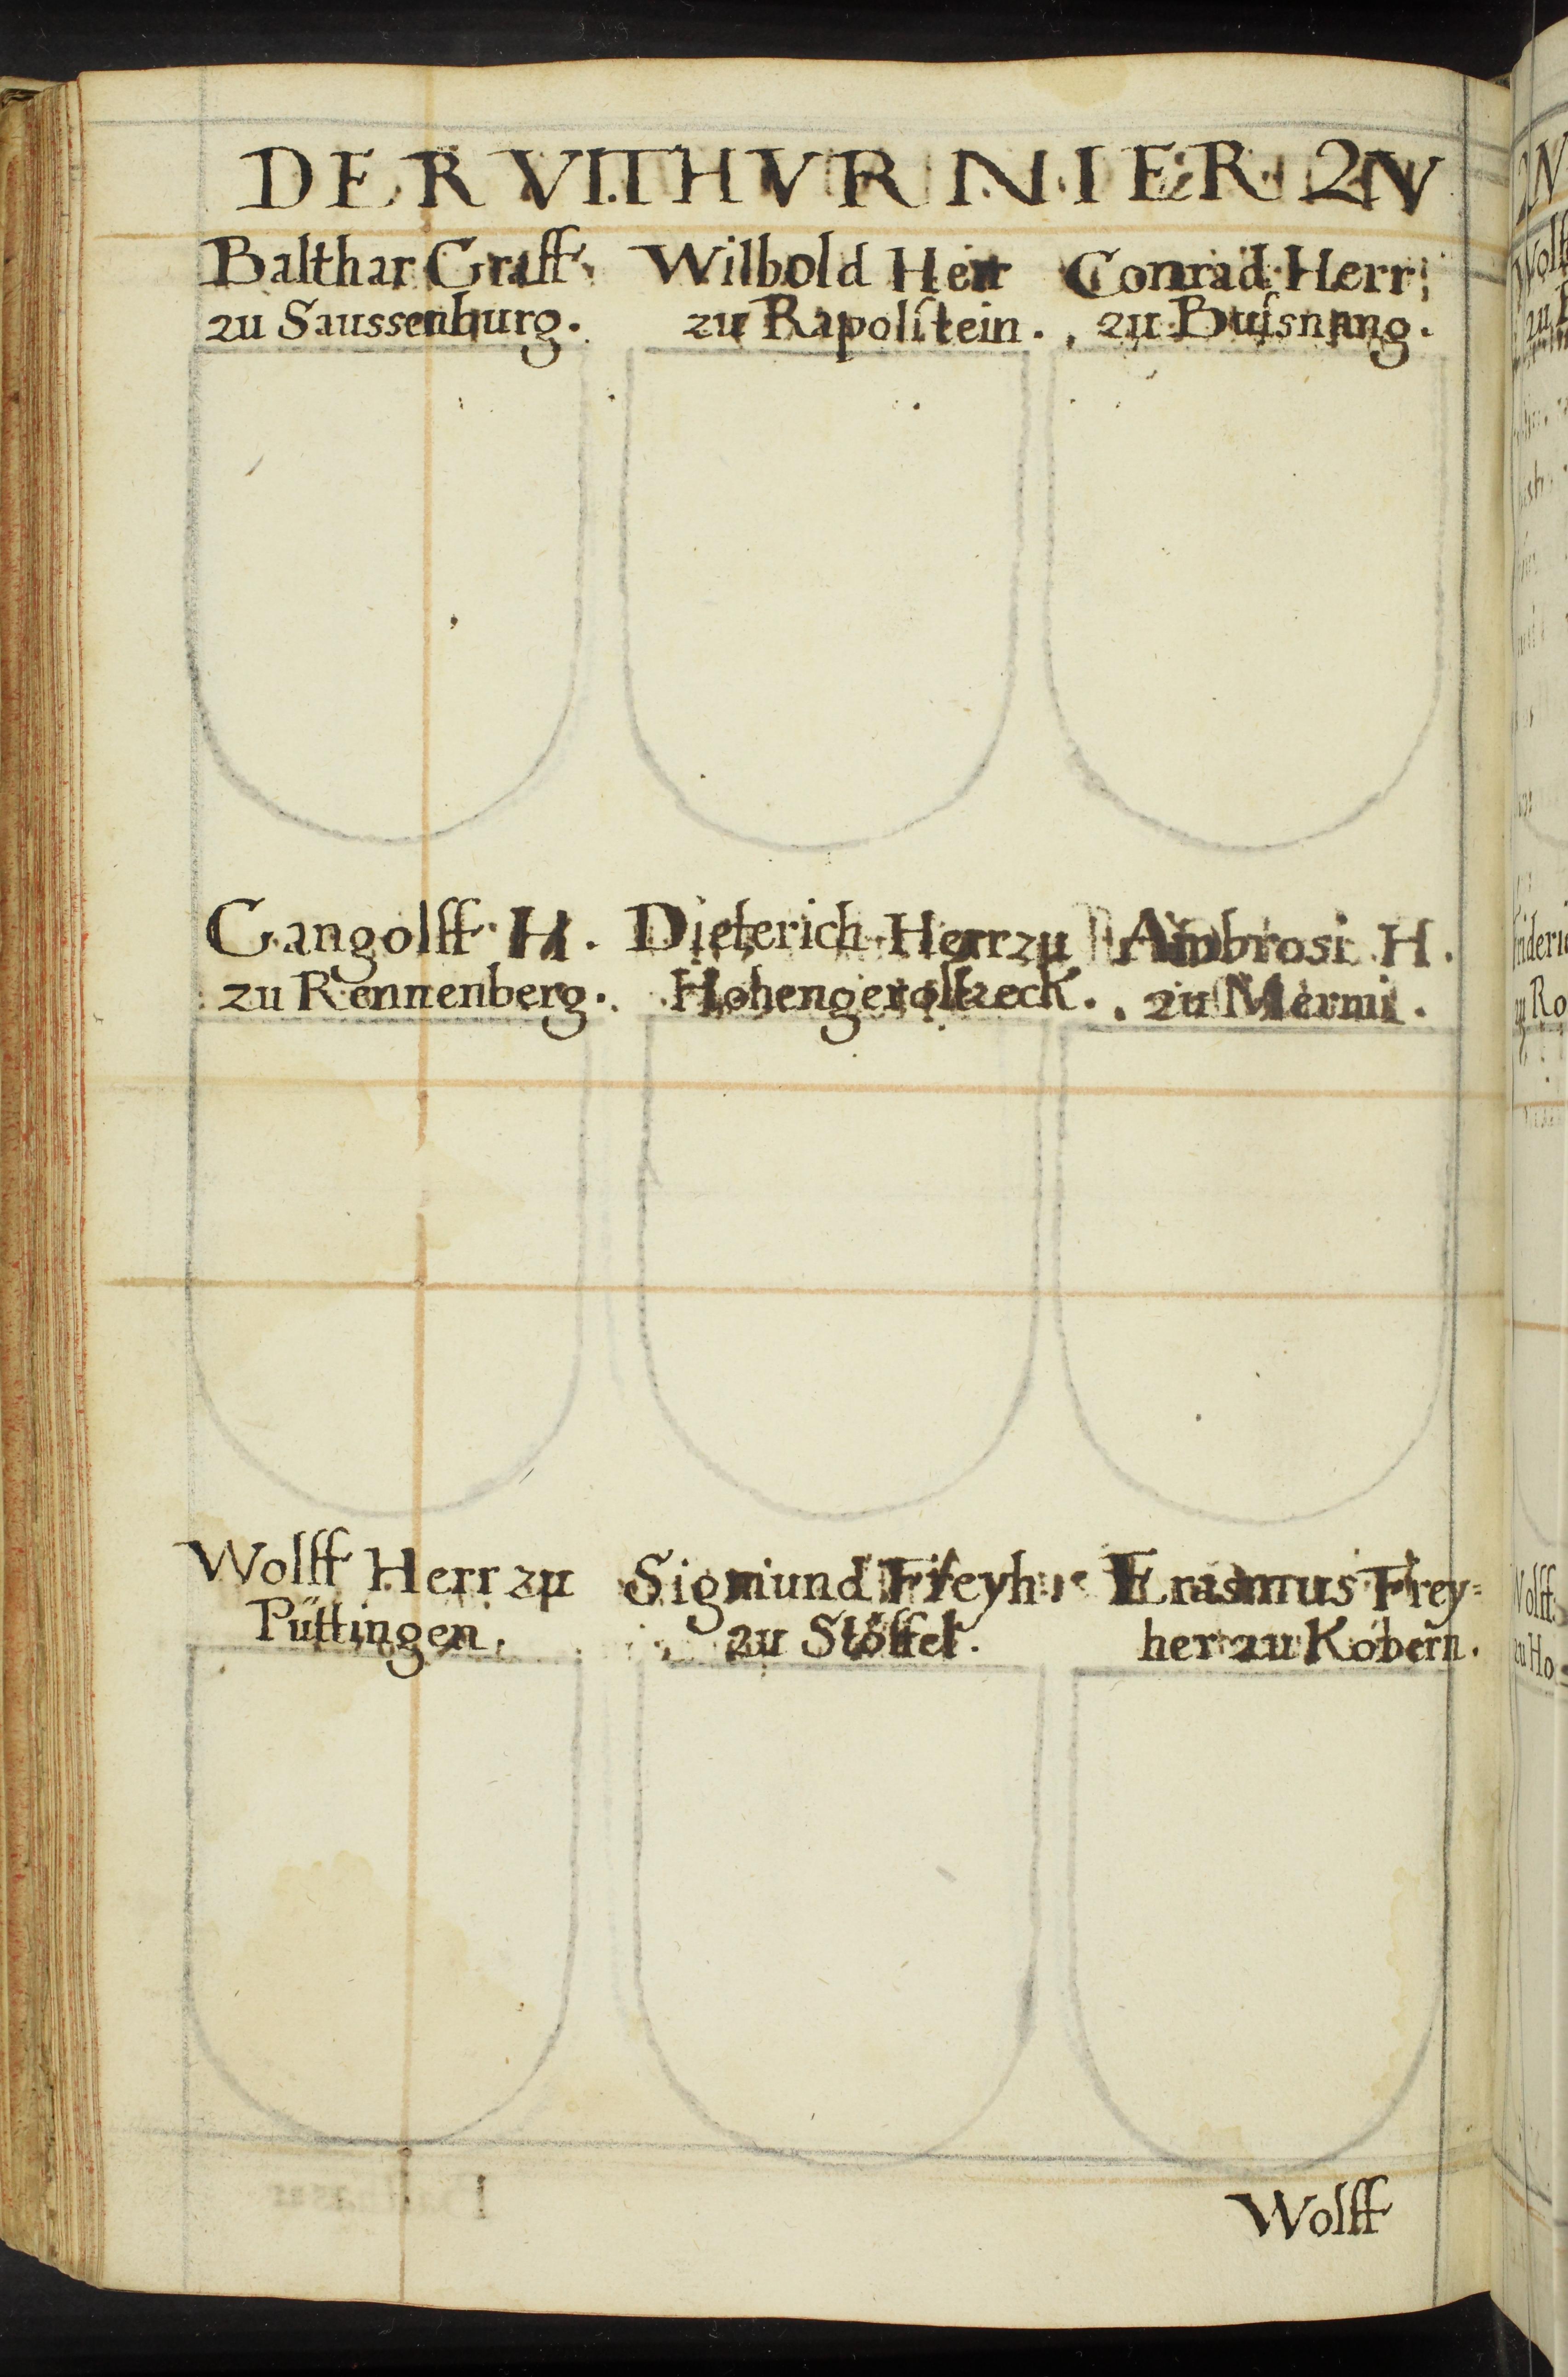 DER VI. THVRNIER. ZV
Balthar Graff
zu Saussenburg.
Wilbold Herr
zu Rapolstein.
Conrad Herr
zu Busnang.
Gangolff H.
zu Rennenberg.
Dieterich Herr zu
Hohengeroltzeck.
Ambrosi H.
zu Mermi.
Wolff Herr zu
Püttingen.
Sigmund Freyh:
zu Stöffel.
Erasmus Frey=
her zu Kobern.
Wolff